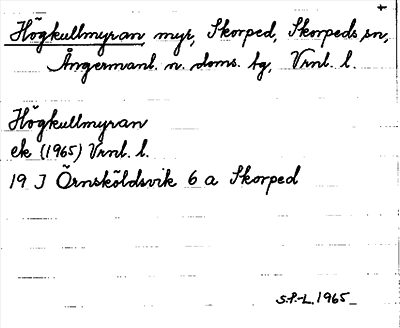 Högkullmyran myr, Skorped, Skorpeds sn,
Ångermanl. n. doms. tg, Vrnl. l.
Högkullmyran
ek (1965) Vrnl. l.
19 J Örnsköldsvik 6 a Skorped
S.P-L. 1965